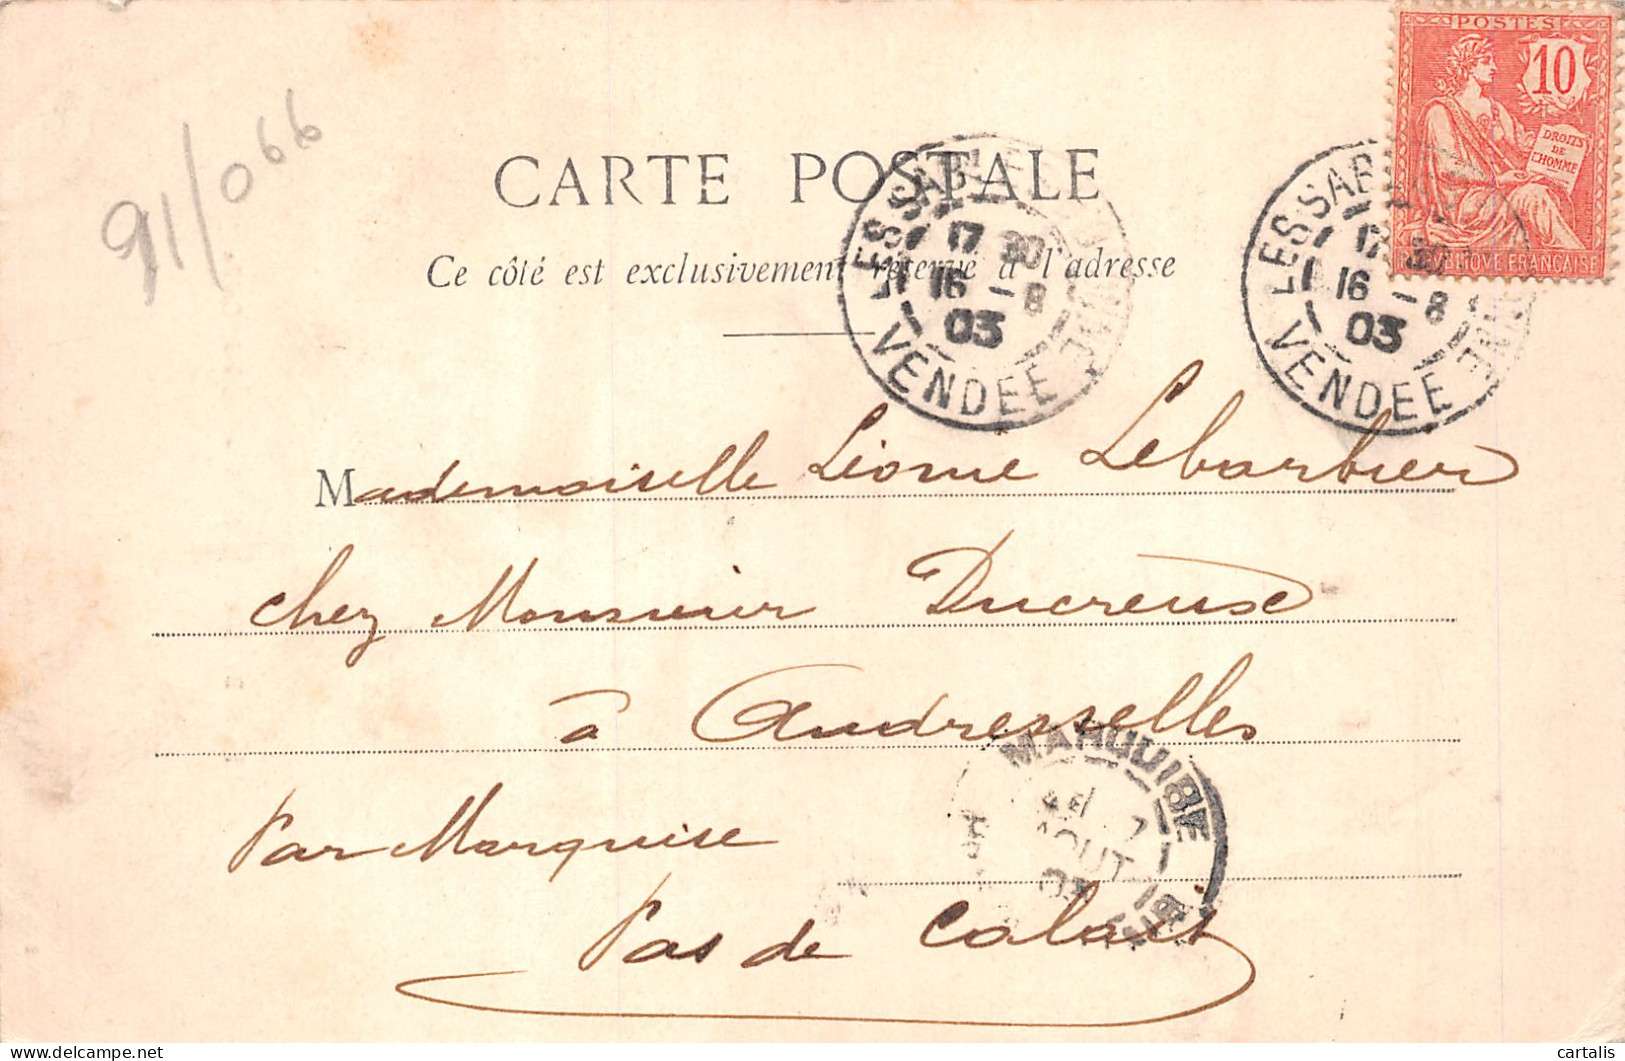 91/066
POSTES
10
DROITS
DE
L'HOMME
REPUBLIQUE FRANÇAISE
CARTE POSTALE
Ce côté est exclusivement réservé à l'adresse
LES SABLES
17 30
16 - 8
03
VENDEE
LES SAB
30
16 - 8
03
VENDEE
Mademoiselle Léonie Lebarbier
chez Monsieur Ducreux
à Audresselles
MARQUISE
7
AOUT
03
Par Marquise
Pas de Calais
delcampe.net
cartalis